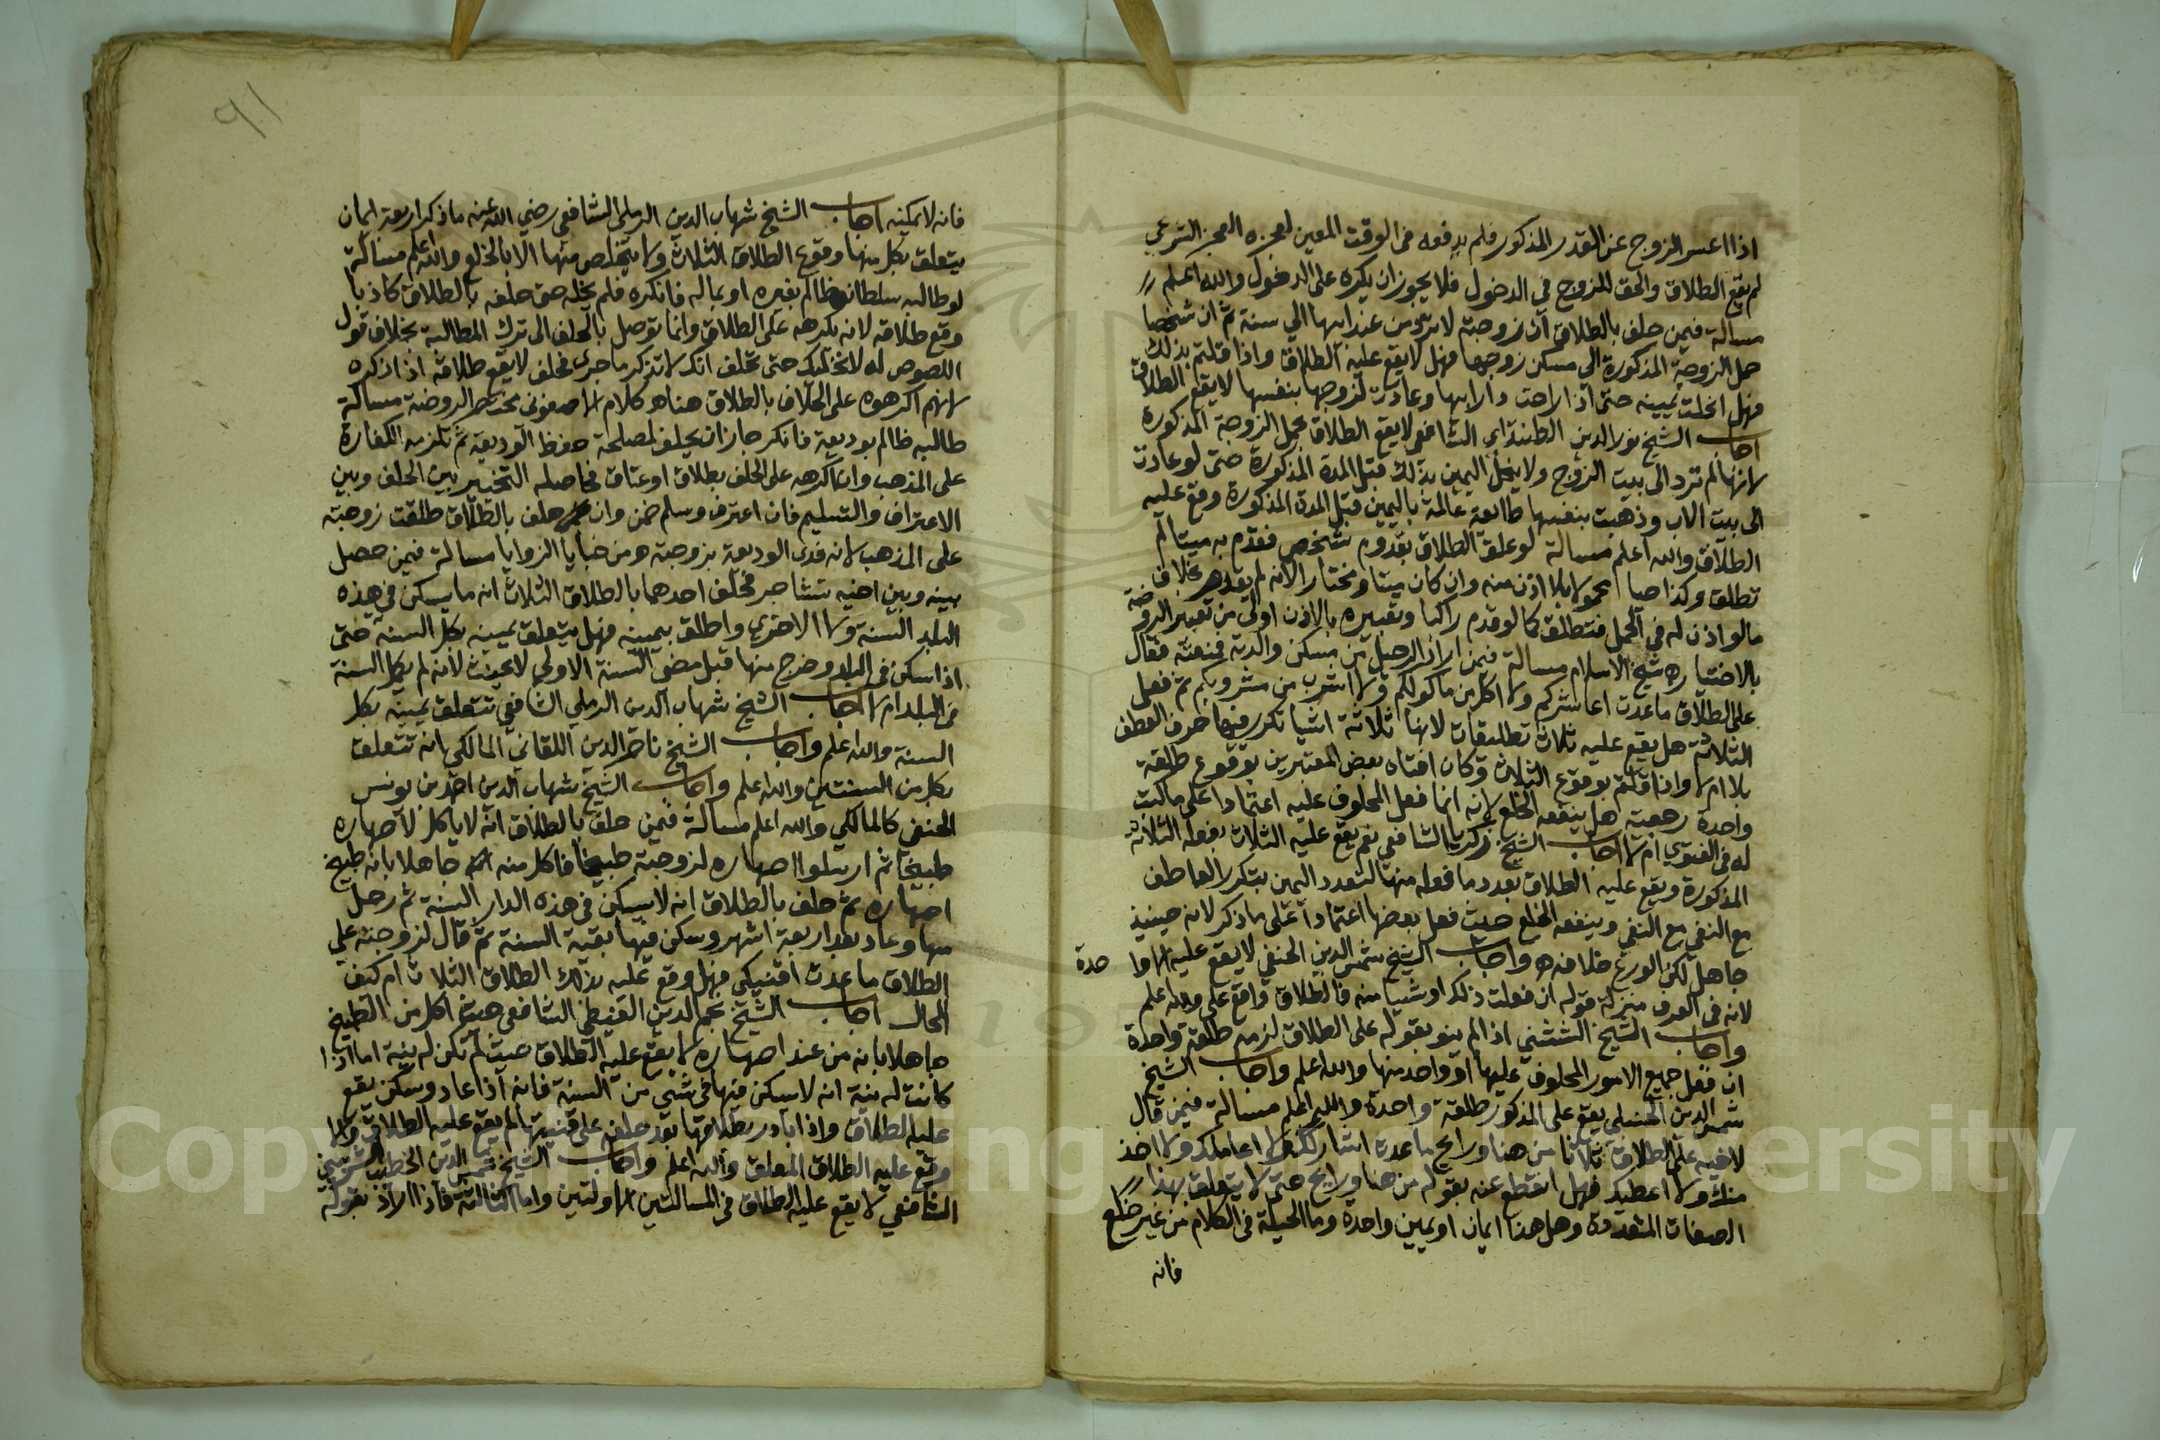 اذا اعسر الزوج عن القدر المذكور فلم يدفعه في الوقت المعين لعجزه العجز الشرعي
لم يقع الطلاق والحق للزوج في الدخول فلا يجوز ان يكره على الدخول والله اعلم
مسالة فيمن حلف بالطلاق ان زوجته لا تروح من عند ابيها الي سنة ثم ان شخصا
حمل الزوجة المذكورة الي مسكن زوجها فهل لا يقع عليه الطلاق واذا قلتم بذلك
فهل انحلت يمينه حتى اذا راحت دار ابيها وعادت لزوجها بنفسها لا يقع الطلاق
اجاب الشيخ نور الدين الطنتداي الشافعي لا يقع الطلاق بحمل الزوجة المذكورة
لانها لم ترد الى بيت الزوج ولا ينحل اليمين بذلك قبل المدة المذكورة حتى لو عادت
الى بيت الاب وذهبت بنفسها طائعة عالمة باليمين قبل المدة المذكورة وقع عليه
الطلاق والله اعلم مسالة لو علق الطلاق بقدوم شخص فقدم به ميتا لم
تطلق وكذا حيا محمولا بلا اذن منه وان كان ميتا ومختارا لانه لم يقدم بخلاف
مالو اذن له في الحمل فتطلق كما لو قدم راكبا وتعبيره بالاذن اولى من تعبير الروضة
بالاختيار ه شيخ الاسلام مسالة فيمن اراد الرحيل من مسكن والدته فمنعته فقال
على الطلاق ما عدت اعاشركم ولا اكل من ماكولكم ولا اشرب من مشروبكم ثم فعل
الثلاثة هل يقع عليه ثلاث تطليقات لانها ثلاثة اشيا تكرر فيها حرف العطف
بلا ام لا واذا قلتم بوقوع الثلاث وكان افتاه بعض المعتبرين بوقوع طلقة
واحدة رجعية هل ينفعه الخلع لانه انما فعل المحلوف عليه اعتمادا على ما كتب
له في الفتوى ام لا اجاب الشيخ زكريا الشافعي نعم يقع عليه الثلاث بفعله الثلاثة
المذكورة ويقع عليه الطلاق بعدد ما فعله منها لتعدد اليمين بتكرر العاطف
مع النفي مع النفي وينفعه الخلع حيث فعل بعضها اعتمادا على ما ذكر لانه حينيذ
جاهل لكن الورع خلافه ه واجاب الشيخ شمس الدين الحنفي لا يقع عليه الا وا حدة
لانه في العرف منزلة قوله ان فعلت ذلك او شيا منه فالطلاق واقع علي والله اعلم
واجاب الشيخ الششني اذا لم ينو بقوله على الطلاق لزمه طلقة واحدة
ان فعل جميع الامور المحلوف عليها او واحد منها والله اعلم واجاب الشيخ
شمس الدين الحنبلي يقع على المذكور طلقة واحدة والله اعلم مسالة فيمن قال
لاخيه على الطلاق ثلاثا من هنا ورايح ما عدت اشاركك ولا اعاملك ولا اخذ
منك ولا اعطيك فهل انقطع عنه بقوله من هنا ورايح حتى لا يتعلق بهذا
الصفات المتعددة وهل هذا ايمان او يمين واحدة وما الحيلة في الكلام من غير خلع
فانه
٩١
فانه لا يمكنه اجاب الشيخ شهاب الدين الرملي الشافعي رضي الله عنه ما ذكر اربعة ايمان
يتعلق بكل منها وقوع الطلاق الثلاث ولا يتخلص منها الا بالخلع والله اعلم مسالة
لو طالبه سلطان ظالم بغيره او بماله فانكره فلم يخله حتى حلفه بالطلاق كاذبا
وقع طلاقه لانه لم يكرهه على الطلاق وانما توصل بالحلف الى ترك المطالبة بخلاف قول
اللصوص له لا نخليك حتى تحلف انك لا تذكر ما جرى فحلف لا يقع طلاقه اذا ذكره
لانهم اكرهوه على الحلف بالطلاق هنا ه كلام الاصفوني مختصر الروضة مسالة
طالبه ظالم بوديعة فانكر جاز ان يحلف لمصلحة حفظ الوديعة ثم تلزمه الكفارة
على المذهب وان اكرهه على الحلف بطلاق او عتاق فحاصله التخيير بين الحلف وبين
الاعتراف والتسليم فان اعترف وسلم ضمن وان حلف بالطلاق طلقت زوجته
على المذهب لانه فدى الوديعة بزوجته ه من خبايا الزوايا مسالة فيمن حصل
بينه وبين اخيه تشاجر فحلف احدهما بالطلاق الثلاث انه ما يسكن في هذه
البلد السنة ولا الاخري واطلق يمينه فهل يتعلق يمينه بكل السنة حتى
اذا سكن في البلد وخرج منها قبل مضي السنة الاولي لا يحنث لانه لم يكمل السنة
في البلد ام لا اجاب الشيخ شهاب الدين الرملي الشافعي تتعلق يمينه بكل
السنة والله اعلم واجاب الشيخ ناصر الدين اللقاني المالكي بانه تتعلق
بكل من السنتين والله اعلم واجاب الشيخ شهاب الدين احمد بن يونس
الحنفي كالمالكي والله اعلم مسالة فيمن حلف بالطلاق انه لا ياكل لاصهاره
طبيخا ثم ارسلوا اصهاره لزوجته طبيخا فاكل منه جاهلا بانه طبيخ
اصهاره ثم حلف بالطلاق انه لا يسكن في هذه الدار السنة ثم رحل
منها وعاد بعد اربعة اشهر وسكن فيها بقية السنة ثم قال لزوجته علي
الطلاق ما عدت اقنيكي فهل وقع عليه بذلك الطلاق الثلاث ام كيف
الحال اجاب الشيخ نجم الدين الغيطي الشافعي حيث اكل من الطبيخ
جاهلا بانه من عند اصهاره لا يقع عليه الطلاق حيث لم تكن له نية اما اذا
كانت له نية انه لا يسكن فيها في شي من السنة فانه اذا عاد وسكن يقع
عليه الطلاق واذا بادر بطلاقها بعد حلفه على قنيتها لم يقع عليه الطلاق والا
وقع عليه الطلاق المعلق والله اعلم واجاب الشيخ شمس الدين الخطيب الشربيني
الشافعي لا يقع عليه الطلاق في المسالتين الاولتين واما الثالثة فاذا اراد بقوله
Copyright © King Saud University